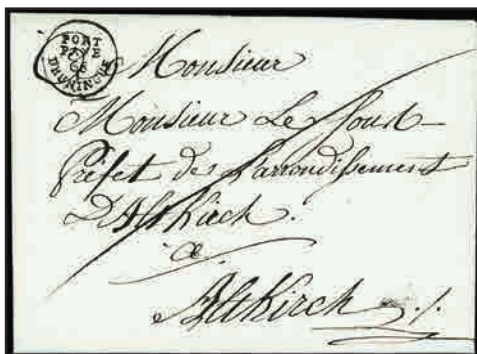 PORT
PAYÉ
66
D'HUNINGUE
Monsieur
Monsieur Le Sous-
Préfet de L'arrondissement
D'Altkirch.
a
Altkirch ./.